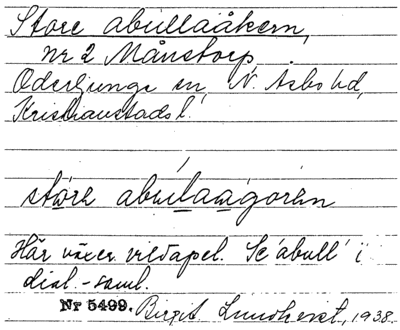 Store abullaåkern,
nr 2 Månstorp,
Oderljunga sn, N. Åsbo hd,
Kristianstads l.
störe abulaagorän
Här växer vildapel. Se 'abull' i
dial.-saml.
Nr 5499. Birgit Lundkvist, 1938.